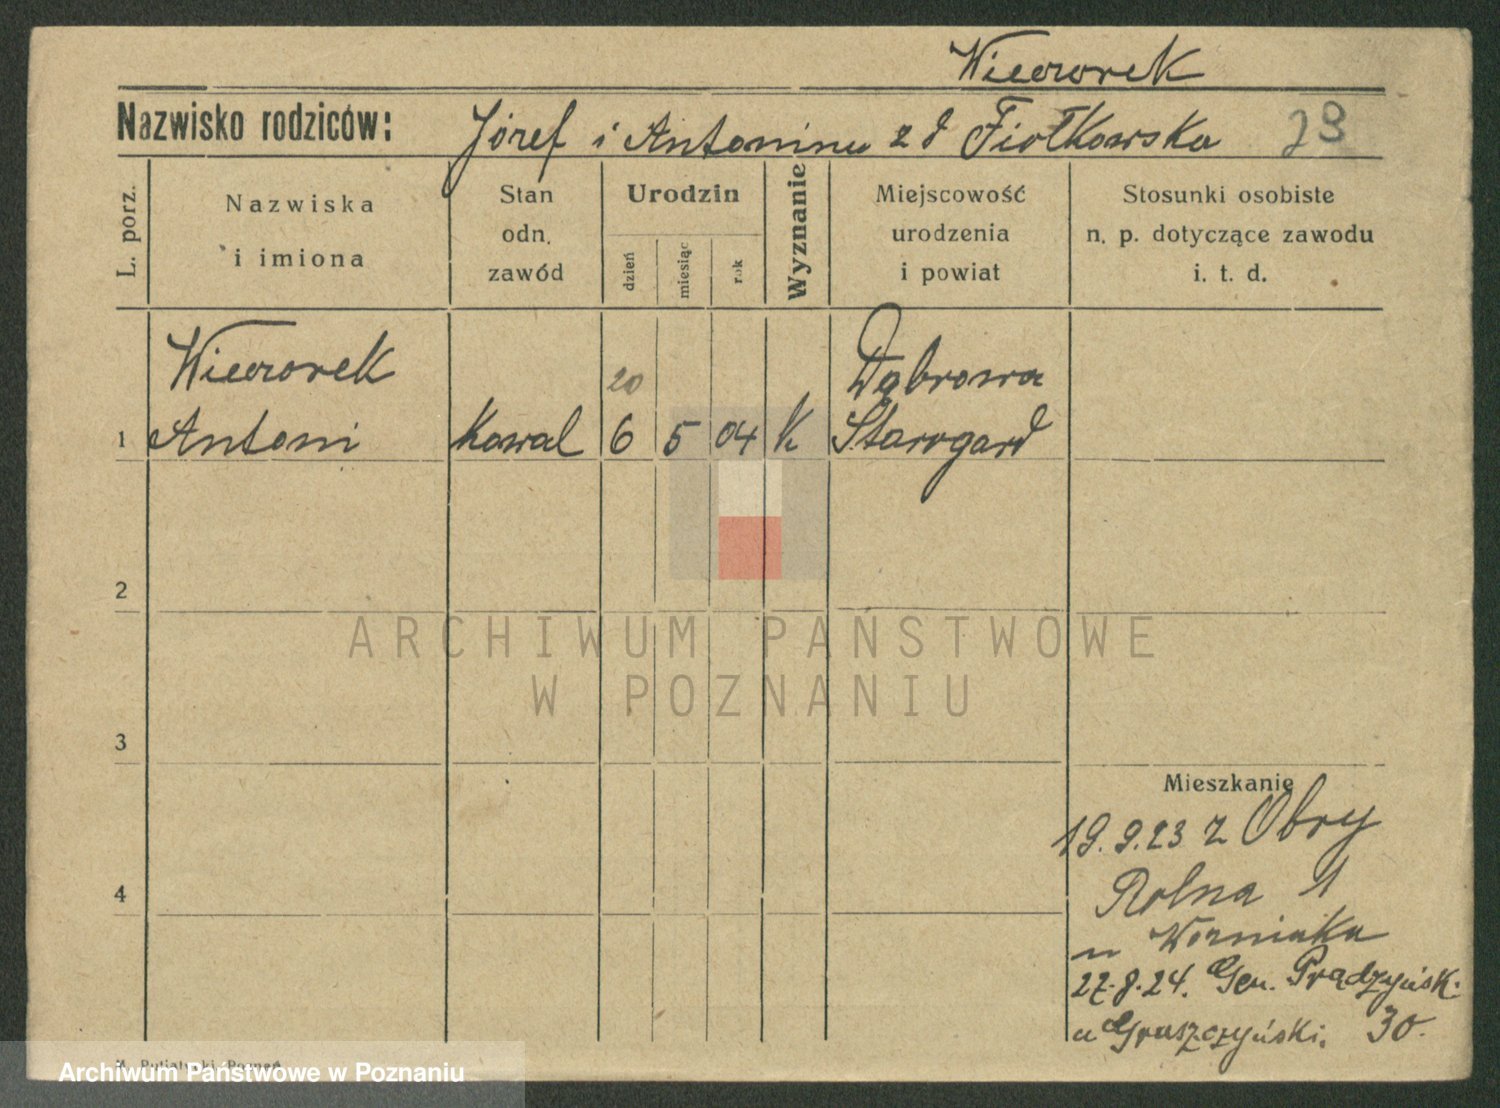 Wieczorek
Nazwisko rodziców: Józef i Antonina z d Fiołkowska 29
L. porz.
Nazwiska i imiona
Stan odn. zawód
Urodzin
dzień
miesiąc
rok
Wyznanie
Miejscowość urodzenia i powiat
Stosunki osobiste n. p. dotyczące zawodu i. t. d.
Wieczorek 20 Dąbrowa
1 Antoni Kowal 6 5 04 K Starogard
2
ARCHIWUM PAŃSTWOWE
W POZNANIU
3
Mieszkanie
19.9.23 z Obry
Rolna 11
u Woźniaka
4
27.8.24. Gen. Prądzyńsk.
u Gruszczyński. 30.
Poznań
Archiwum Państwowe w Poznaniu